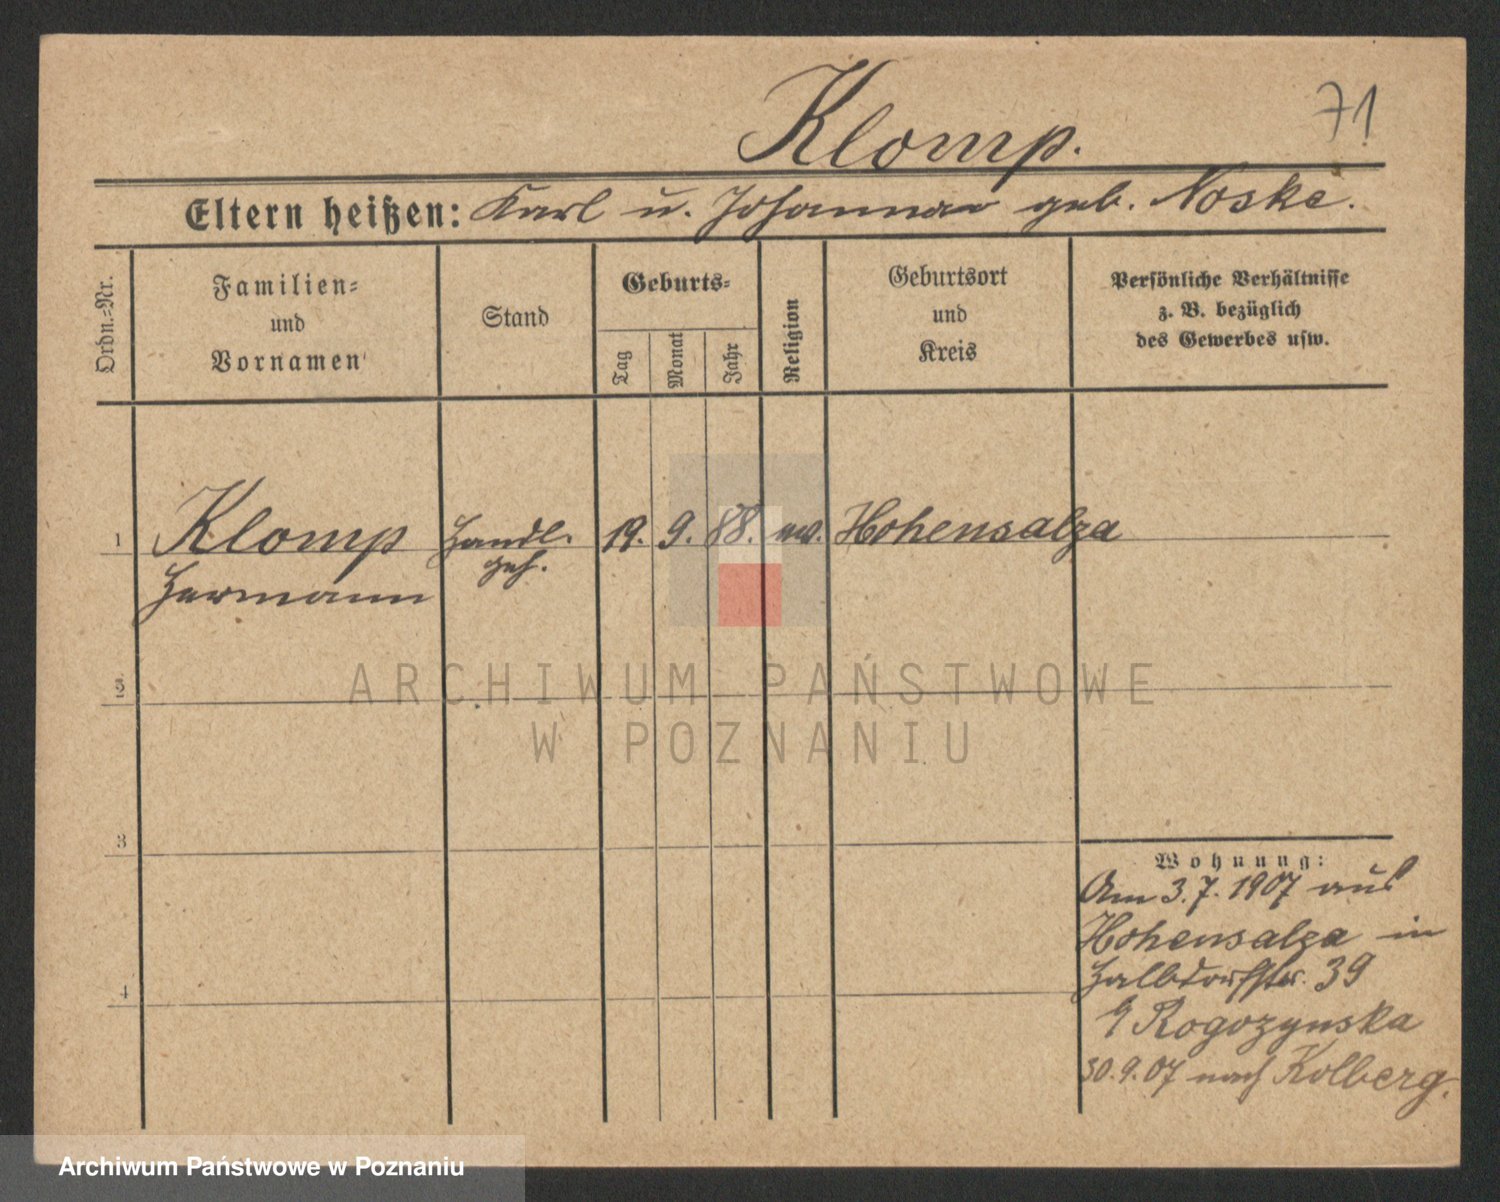 71
Klomp.
Eltern heißen: Karl u. Johanna geb. Noske.
Ordn.=Nr.
Familien=
und
Vornamen
Stand
Geburts=
Tag
Monat
Jahr
Religion
Geburtsort
und
Kreis
Persönliche Verhältnisse
z. B. bezüglich
des Gewerbes usw.
1 Klomp Handl. 19. 9. 88. ev. Hohensalza
Hermann geh.
ARCHIWUM PAŃSTWOWE
W POZNANIU
3
4
Wohnung:
Am 3.7.1907 aus
Hohensalza in
Halbdorfstr. 39
Rogozynska
30.9.07 nach Kolberg.
Archiwum Państwowe w Poznaniu